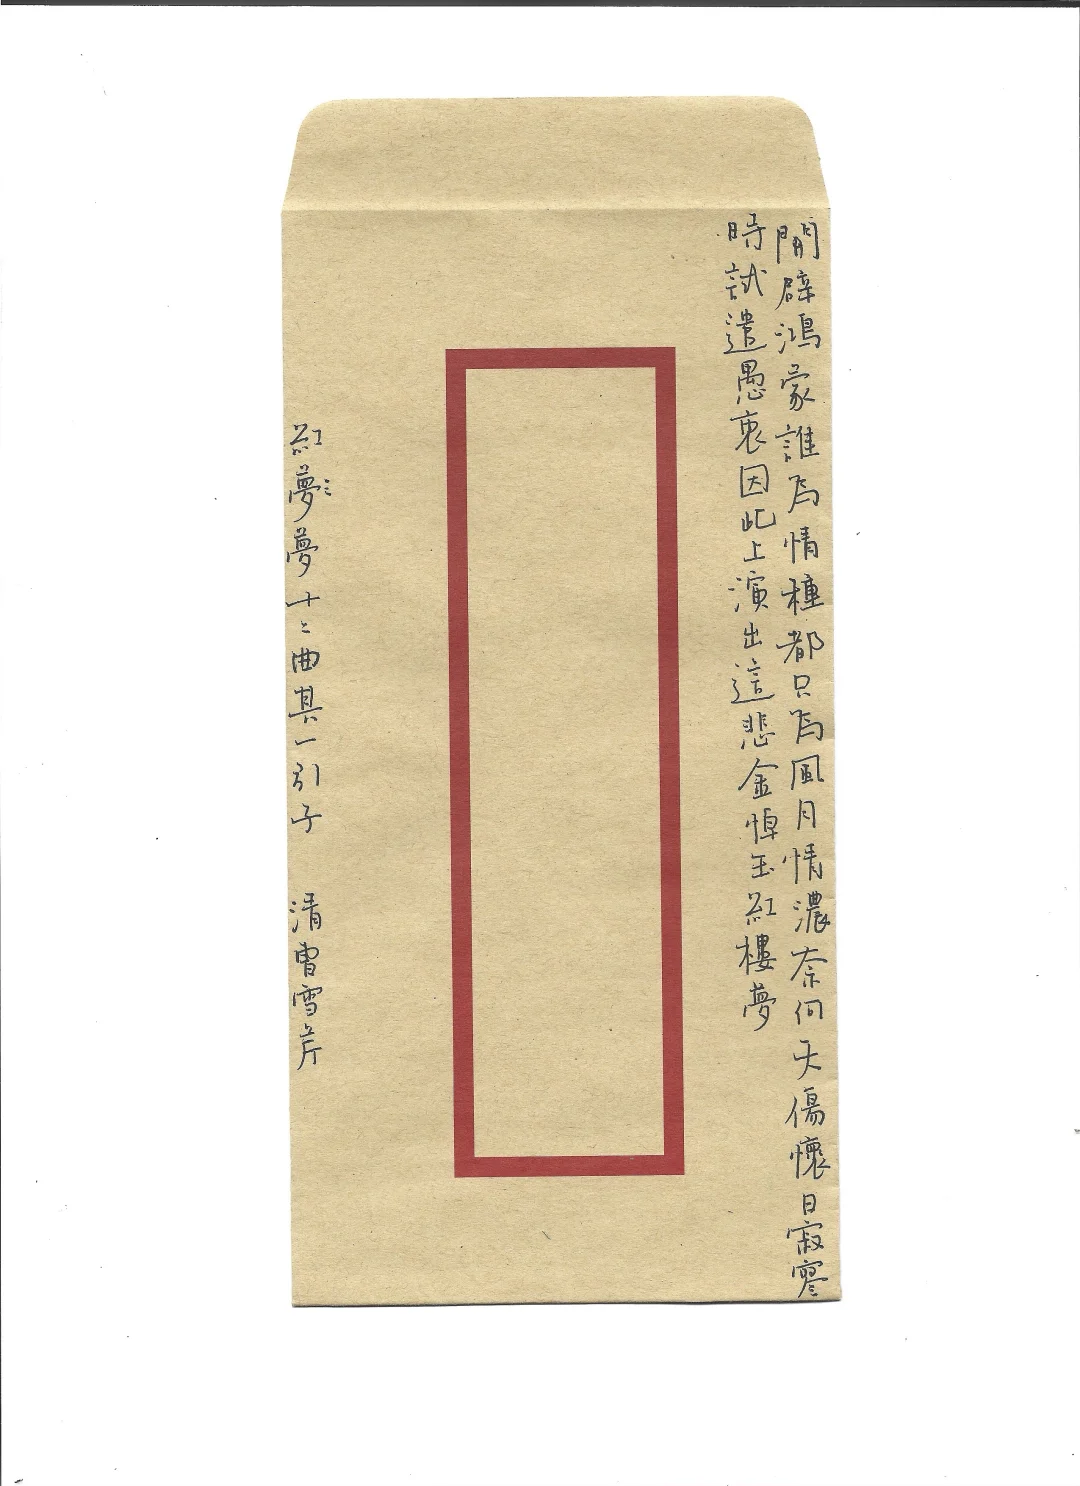 開辟鴻蒙誰為情種都只為風月情濃奈何天傷懷日寂寥
時試遣愚衷因此上演出這悲金悼玉紅樓夢
紅夢夢十二曲其一引子　清曹雪芹